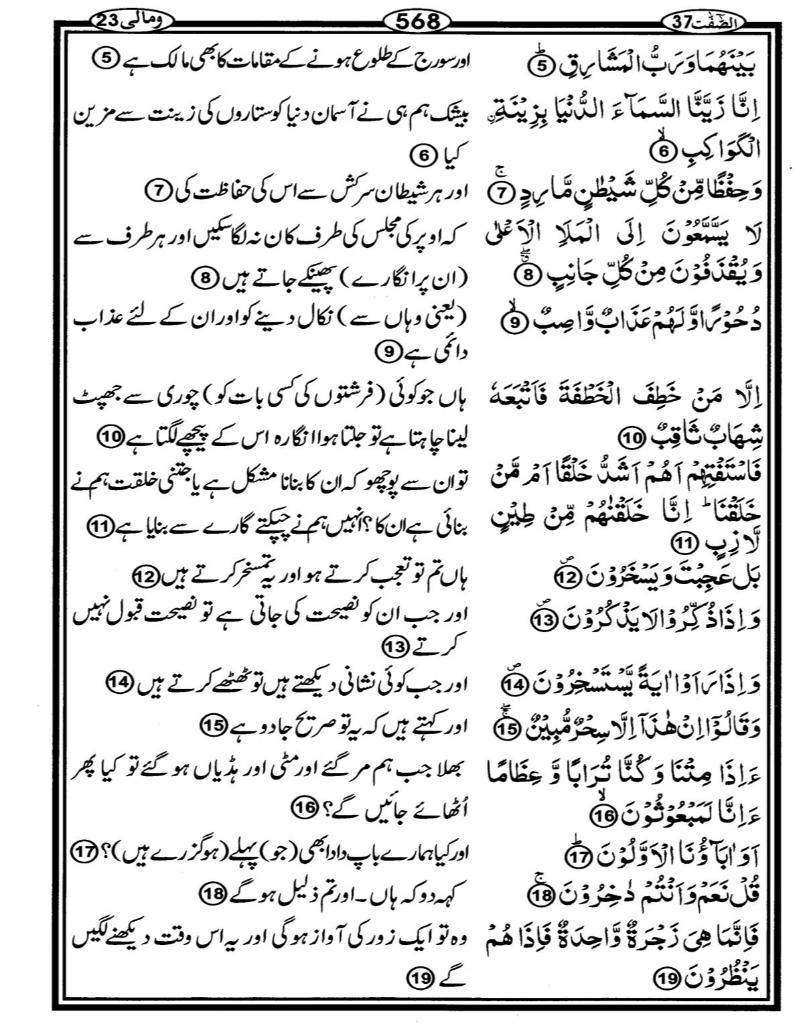 الصّٰفّٰت37 568 ومالی23
بَيْنَهُمَا وَرَبُّ الْمَشَارِقِ ۝5 اور سورج کے طلوع ہونے کے مقامات کا بھی مالک ہے ۝5
اِنَّا زَيَّنَّا السَّمَآءَ الدُّنْيَا بِزِيْنَةِ ۨ بیشک ہم ہی نے آسمان دنیا کو ستاروں کی زینت سے مزین
الْكَوَاكِبِ ۝6 کیا ۝6
وَحِفْظًا مِّنْ كُلِّ شَيْطٰنٍ مَّارِدٍ ۝7 اور ہر شیطان سرکش سے اس کی حفاظت کی ۝7
لَا يَسَّمَّعُوْنَ اِلَى الْمَلَاِ الْاَعْلٰى کہ اوپر کی مجلس کی طرف کان نہ لگا سکیں اور ہر طرف سے
وَيُقْذَفُوْنَ مِنْ كُلِّ جَانِبٍ ۝8 (ان پر انگارے) پھینکے جاتے ہیں ۝8
دُحُوْرًا وَّلَهُمْ عَذَابٌ وَّاصِبٌ ۝9 (یعنی وہاں سے) نکال دینے کو اور ان کے لئے عذاب
دائمی ہے ۝9
اِلَّا مَنْ خَطِفَ الْخَطْفَةَ فَاَتْبَعَهٗ ہاں جو کوئی (فرشتوں کی کسی بات کو) چوری سے جھپٹ
شِهَابٌ ثَاقِبٌ ۝10 لینا چاہتا ہے تو جلتا ہوا انگارہ اس کے پیچھے لگتا ہے ۝10
فَاسْتَفْتِهِمْ اَهُمْ اَشَدُّ خَلْقًا اَمْ مَّنْ تو ان سے پوچھو کہ ان کا بنانا مشکل ہے یا جتنی خلقت ہم نے
خَلَقْنَا ؕ اِنَّا خَلَقْنٰهُمْ مِّنْ طِيْنٍ بنائی ہے ان کا؟ انہیں ہم نے چپکتے گارے سے بنایا ہے ۝11
لَّازِبٍ ۝11
بَلْ عَجِبْتَ وَيَسْخَرُوْنَ ۝12 ہاں تم تو تعجب کرتے ہو اور یہ تمسخر کرتے ہیں ۝12
وَاِذَا ذُكِّرُوْا لَا يَذْكُرُوْنَ ۝13 اور جب ان کو نصیحت کی جاتی ہے تو نصیحت قبول نہیں
کرتے ۝13
وَاِذَا رَاَوْا اٰيَةً يَّسْتَسْخِرُوْنَ ۝14 اور جب کوئی نشانی دیکھتے ہیں تو ٹھٹھے کرتے ہیں ۝14
وَقَالُوْۤا اِنْ هٰذَاۤ اِلَّا سِحْرٌ مُّبِيْنٌ ۝15 اور کہتے ہیں کہ یہ تو صریح جادو ہے ۝15
ءَاِذَا مِتْنَا وَكُنَّا تُرَابًا وَّ عِظَامًا بھلا جب ہم مر گئے اور مٹی اور ہڈیاں ہو گئے تو کیا پھر
ءَاِنَّا لَمَبْعُوْثُوْنَ ۝16 اُٹھائے جائیں گے؟ ۝16
اَوَاٰبَآؤُنَا الْاَوَّلُوْنَ ۝17 اور کیا ہمارے باپ دادا بھی (جو) پہلے (ہو گزرے ہیں)؟ ۝17
قُلْ نَعَمْ وَاَنْتُمْ دٰخِرُوْنَ ۝18 کہہ دو کہ ہاں۔ اور تم ذلیل ہو گے ۝18
فَاِنَّمَا هِيَ زَجْرَةٌ وَّاحِدَةٌ فَاِذَا هُمْ وہ تو ایک زور کی آواز ہوگی اور یہ اس وقت دیکھنے لگیں
يَنْظُرُوْنَ ۝19 گے ۝19